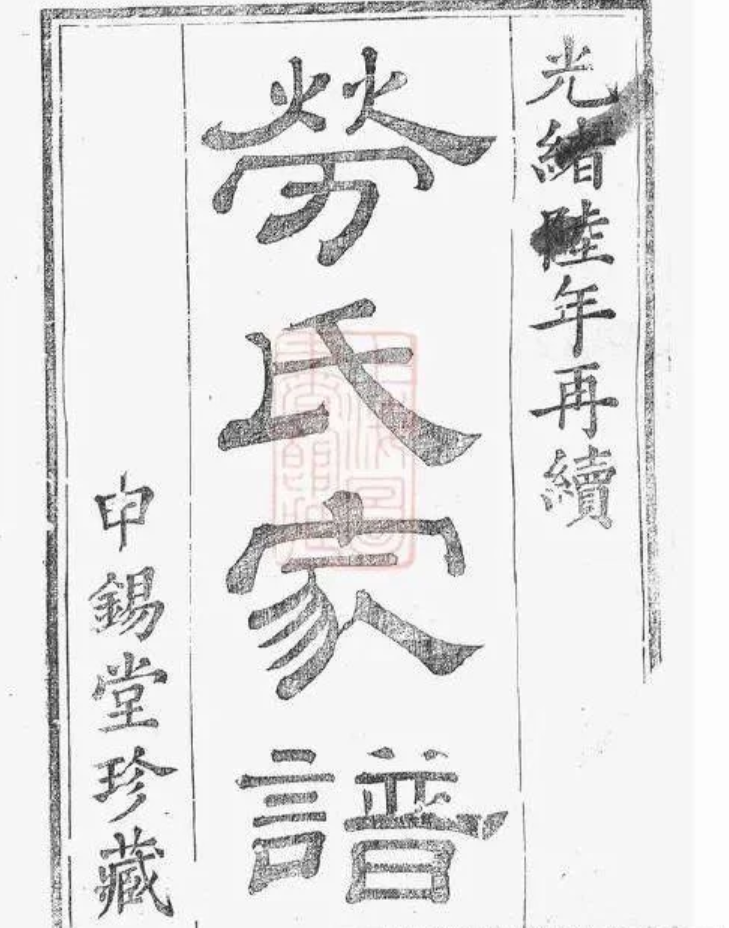 光緒陸年再續
勞氏家譜
申錫堂珍藏